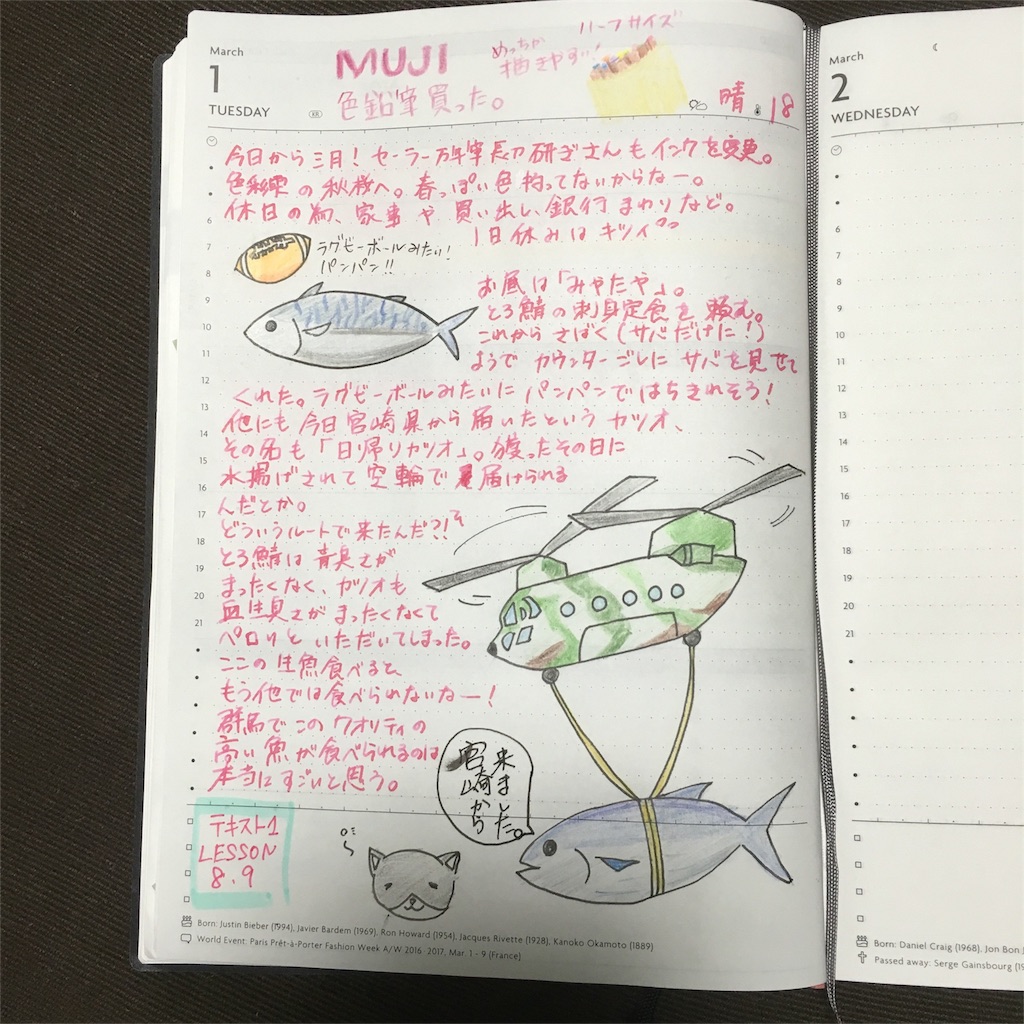 March
1
TUESDAY
MUJI
色鉛筆買った。
めっちゃ
描きやすい!
ハーフサイズ
晴 18
今日から三月！セーラー万年筆長刀研ぎさんもインクを変更。
色彩雫の秋桜へ。春っぽい色持ってないからなー。
休日の為、家事や買い出し、銀行まわりなど。
1日休みはキツイ
ラグビーボールみたい！
パンパン!!
お昼は「みやたや」。
とろ鯖の刺身定食を頼む。
これからさばく(サバだけに！)
ようでカウンターごしにサバを見せて
くれた。ラグビーボールみたいにパンパンではちきれそう！
他にも今日宮崎県から届いたというカツオ、
その名も「日帰りカツオ」。獲ったその日に
水揚げされて空輸で届けられる
んだとか。
どういうルートで来たんだ?!
とろ鯖は青臭さが
まったくなく、カツオも
血生臭さがまったくなくて
ペロリといただいてしまった。
ここの生魚食べると
もう他では食べられないなー！
群馬でこのクオリティの
高い魚が食べられるのは
本当にすごいと思う。
宮崎から
来ました。
テキスト1
LESSON
8.9
6
7
8
9
10
11
12
13
14
15
16
17
18
19
20
21
Born: Justin Bieber (1994), Javier Bardem (1969), Ron Howard (1954), Jacques Rivette (1928), Kanoko Okamoto (1889)
World Event: Paris Prêt-à-Porter Fashion Week A/W 2016-2017, Mar. 1 - 9 (France)
March
2
WEDNESDAY
6
7
8
9
10
11
12
13
14
15
16
17
18
19
20
21
Born: Daniel Craig (1968), Jon Bon
Passed away: Serge Gainsbourg